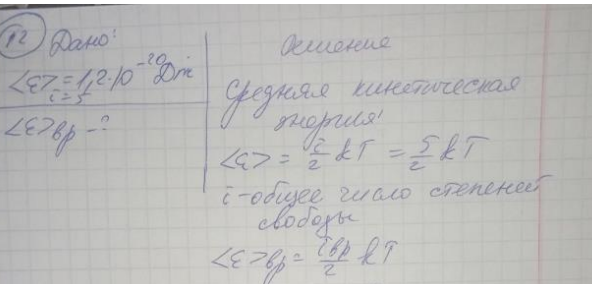 12 Дано:
<Ɛ> = 1,2·10⁻²⁰ Дж
i=5
<Ɛ>вр - ?
Решение
Средняя кинетическая
энергия:
<Ɛ> = i/2 kT = 5/2 kT
i - общее число степеней
свободы
<Ɛ>вр = iвр/2 kT